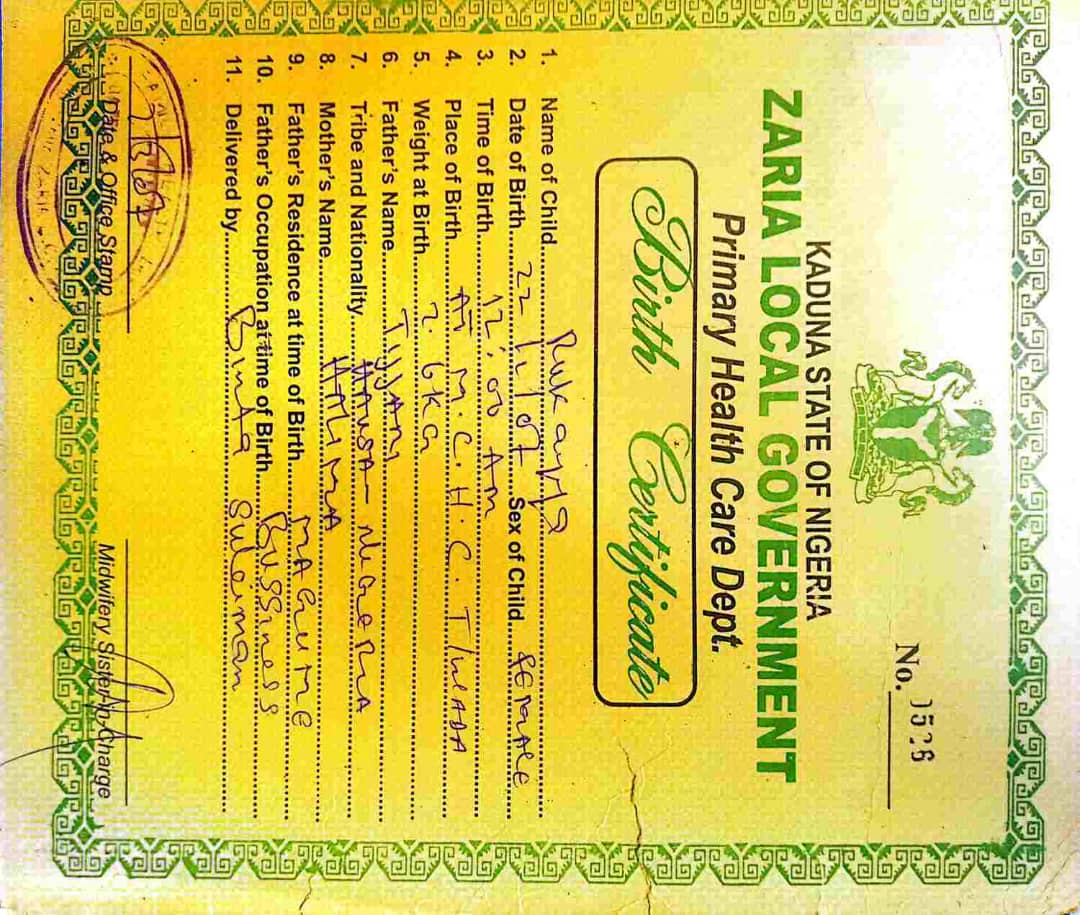 No. 1526
KADUNA STATE OF NIGERIA
ZARIA LOCAL GOVERNMENT
Primary Health Care Dept.
Birth Certificate
1. Name of Child Rukayya
2. Date of Birth 22 Sex of Child female
3. Time of Birth 12:00 Am
4. Place of Birth At M.C.H.C. T/WADA
5. Weight at Birth 2.6KG
6. Father's Name TIJJANI
7. Tribe and Nationality HAUSA - NIGERIA
8. Mother's Name HALIMA
9. Father's Residence at time of Birth MAGUME
10. Father's Occupation at time of Birth Bussiness
11. Delivered by Binta Suleiman
Date & Office Stamp
Midwifery Sister In Charge